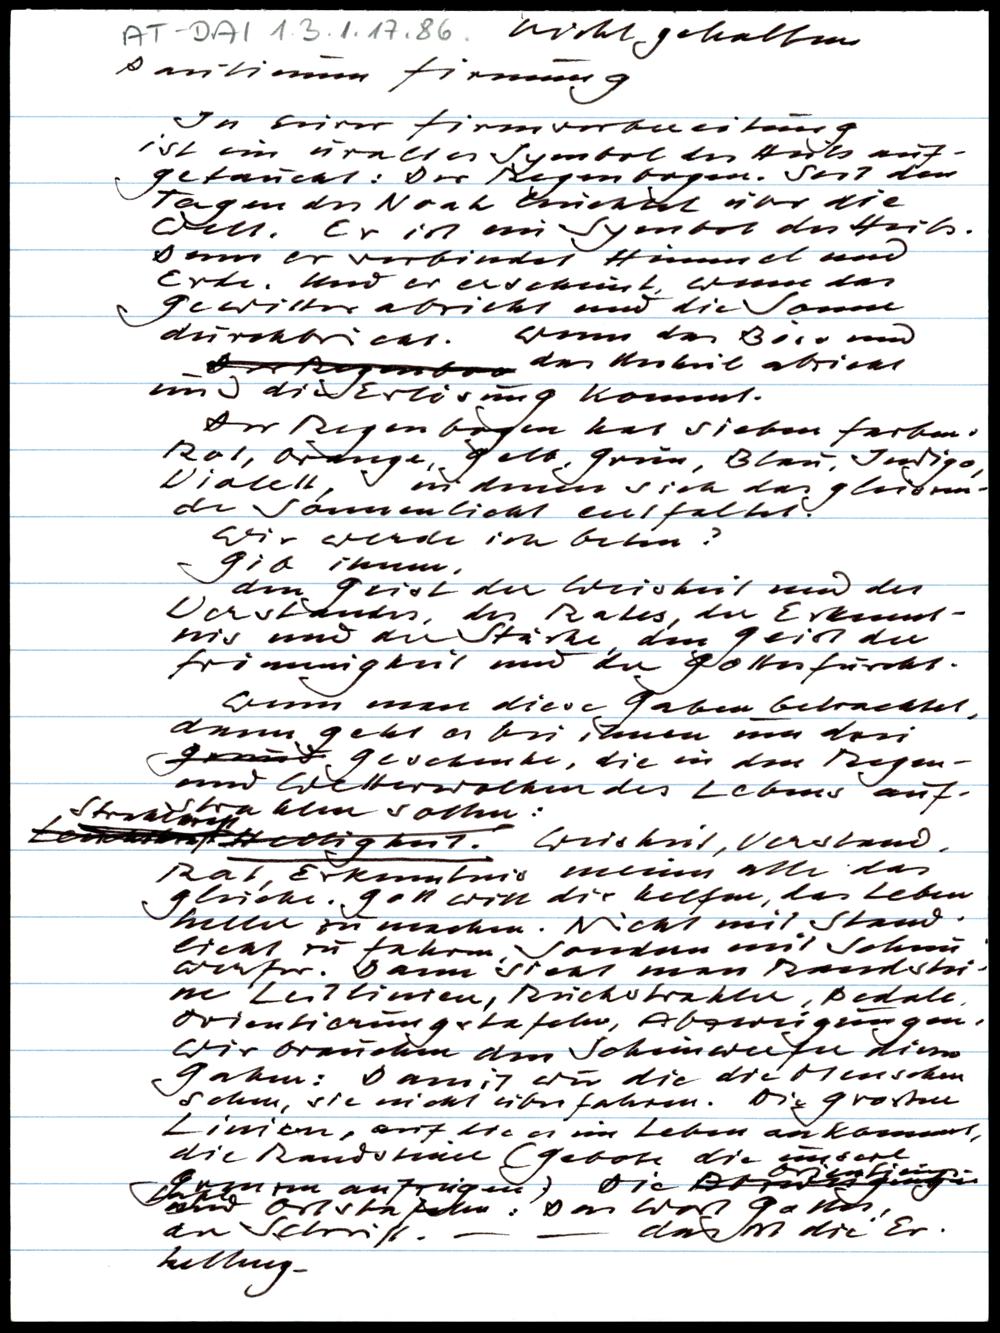 AT-DAI 1.3.1.17.86. nicht gehalten
Firmung
In eurer Firmvorbereitung
ist ein uraltes Symbol des Heils auf-
getaucht: Der Regenbogen. Seit den
Tagen des Noah leuchtet über die
Welt. Er ist ein Symbol des Heils.
Denn er verbindet Himmel und
Erde. Und er erscheint, wenn das
Gewitter abzieht und die Sonne
durchbricht. Wenn das Böse und
Der Regenbog das Unheil abzieht
und die Erlösung kommt.
Der Regenbogen hat sieben Farben.
Rot, Orange, Gelb, Grün, Blau, Indigo,
Violett, in denen sich das gleißen-
de Sonnenlicht entfaltet.
Wie werde ich beten?
Gib ihnen,
den Geist der Weisheit und des
Verstandes, des Rates, der Erkennt-
nis und der Stärke, den Geist der
Frömmigkeit und der Gottesfurcht.
Wenn man diese Gaben betrachtet,
dann geht es bei ihnen um drei
Geschenke, die in den Regen-
und Wetterwolken des Lebens auf-
strahlen sollen:
Helligkeit. Weisheit, Verstand,
Rat, Erkenntnis meinen alle das
gleiche. Gott will dir helfen, das Leben
heller zu machen. Nicht mit Stand-
licht zu fahren, sondern mit Schein-
werfer. Dann sieht man Randstei-
ne Leitlinien, Rückstrahler, Pedale,
Orientierungstafeln, Abzweigungen.
Wir brauchen den Scheinwerfer dieser
Gaben: Damit wir die die Menschen
sehen, sie nicht überfahren. Die großen
Linien, auf die es im Leben ankommt,
die Randsteine (Gebote die unsere
Grenzen aufzeigen) Die Orientierungs-
und Ortstafeln: Das Wort Gottes,
der Schrift. — — das ist die Er-
hellung-